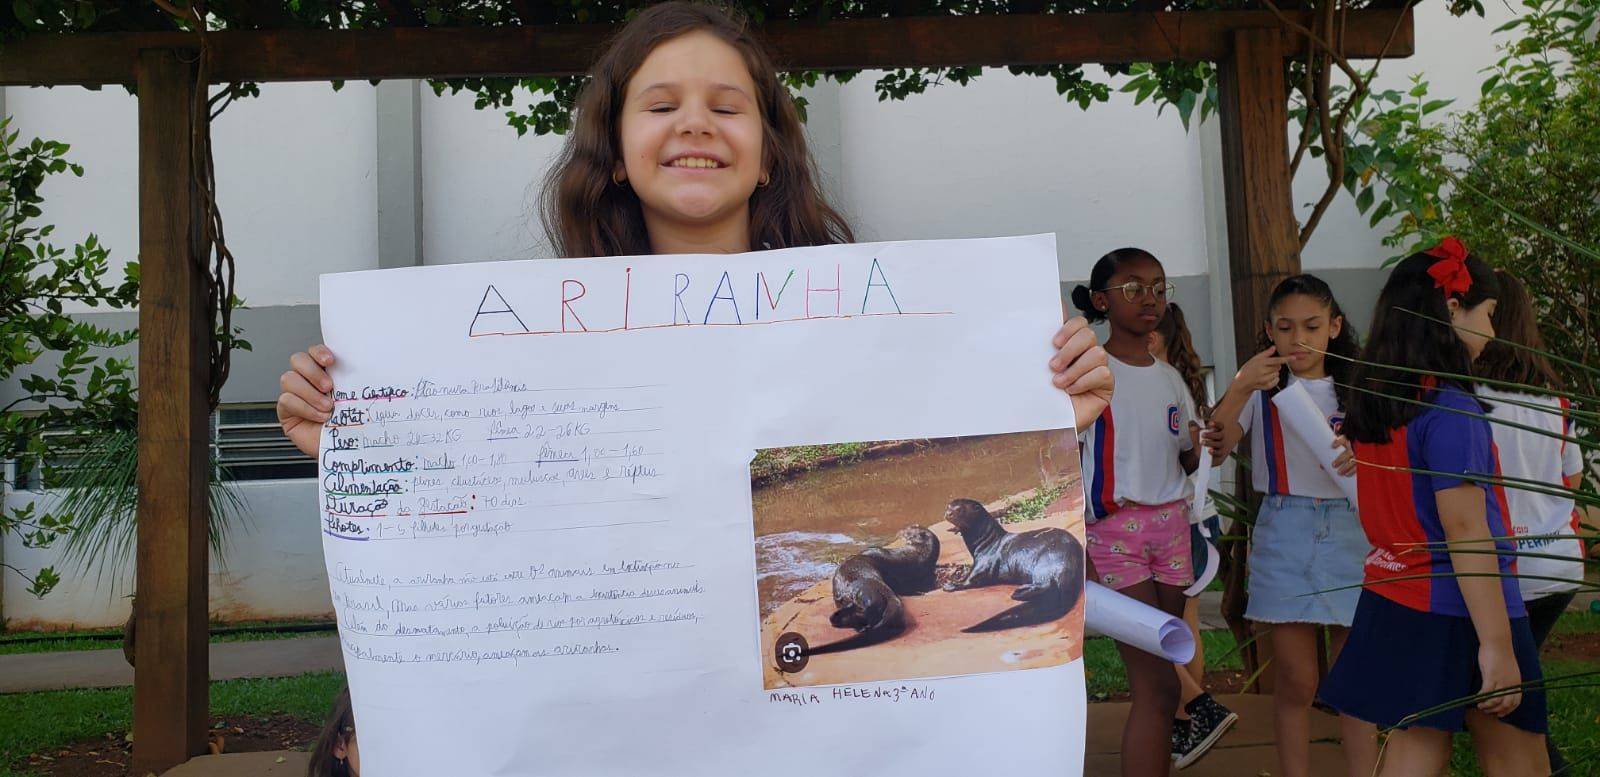 ARIRANHA
Nome Científico:
Habitat: água doce, como rios, lagos e suas margens
Peso: macho 26-32 KG fêmea 22-26 KG
Comprimento: macho 1,00-1,80 fêmeas 1,00-1,60
Alimentação: peixes, crustácios, moluscos, aves e réptis
Duração da Gestação: 70 dias
Filhotes: 1-5 filhotes por gestação
Atualmete, a ariranha não está entre os animais em no
Brasil, mas vários fatores ameaçam a
Além do desmatamento, a poluição de rios por agrotóxicos e resíduos,
principalmente o mercúrio, ameaçam as ariranhas.
MARIA HELENA 3º ANO